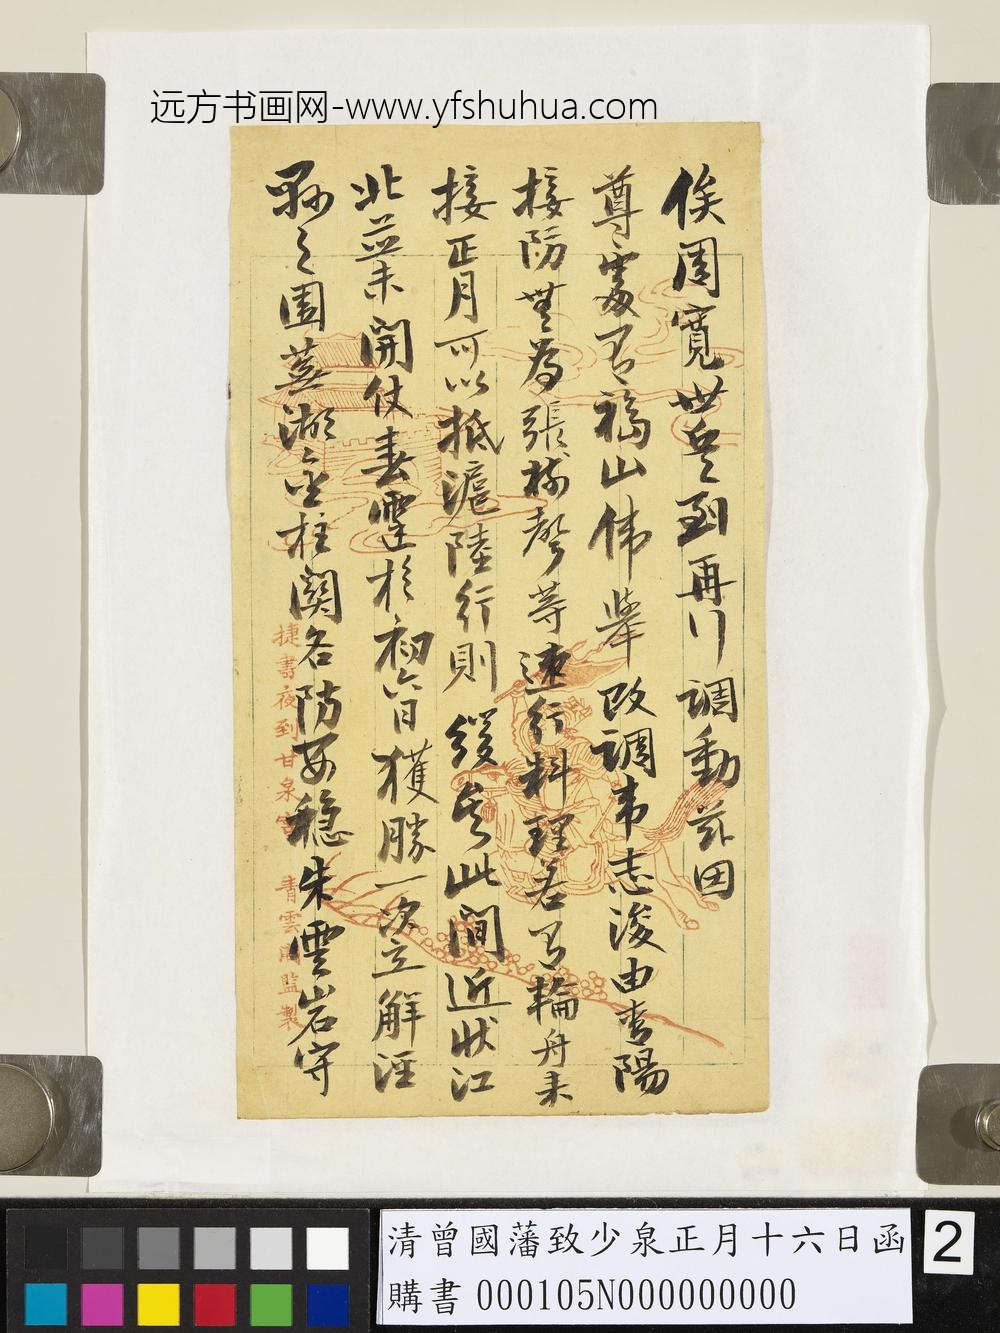 远方书画网-www.yfshuhua.com
俟周寬世兵到再行調動茲因
尊處有福山偉舉改調韋志浚由青陽
接防無為張樹聲等速行料理若有輪舟來
接正月可以抵滬陸行則緩矣此間近狀江
北並未開仗春霆於初六日獲勝一次立解涇
縣之圍蕪湖金柱關各防安穩朱雲岩守
捷書夜到甘泉宮
青雲閣監製
清曾國藩致少泉正月十六日函
購書 000105N000000000
2